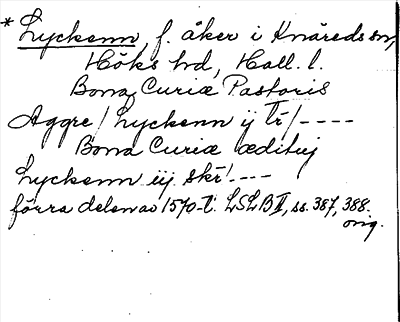 * Lyckenn, f. åker i Knäreds sn,
Höks hd, Hall. l.
Bona Curiæ Pastoris
Aggre / Lyckenn ij tr / ----
Bona Curiæ æditui
Lyckenn iij skr ----
förra delen av 1570-t. LSLB II, ss. 387, 388.
orig.